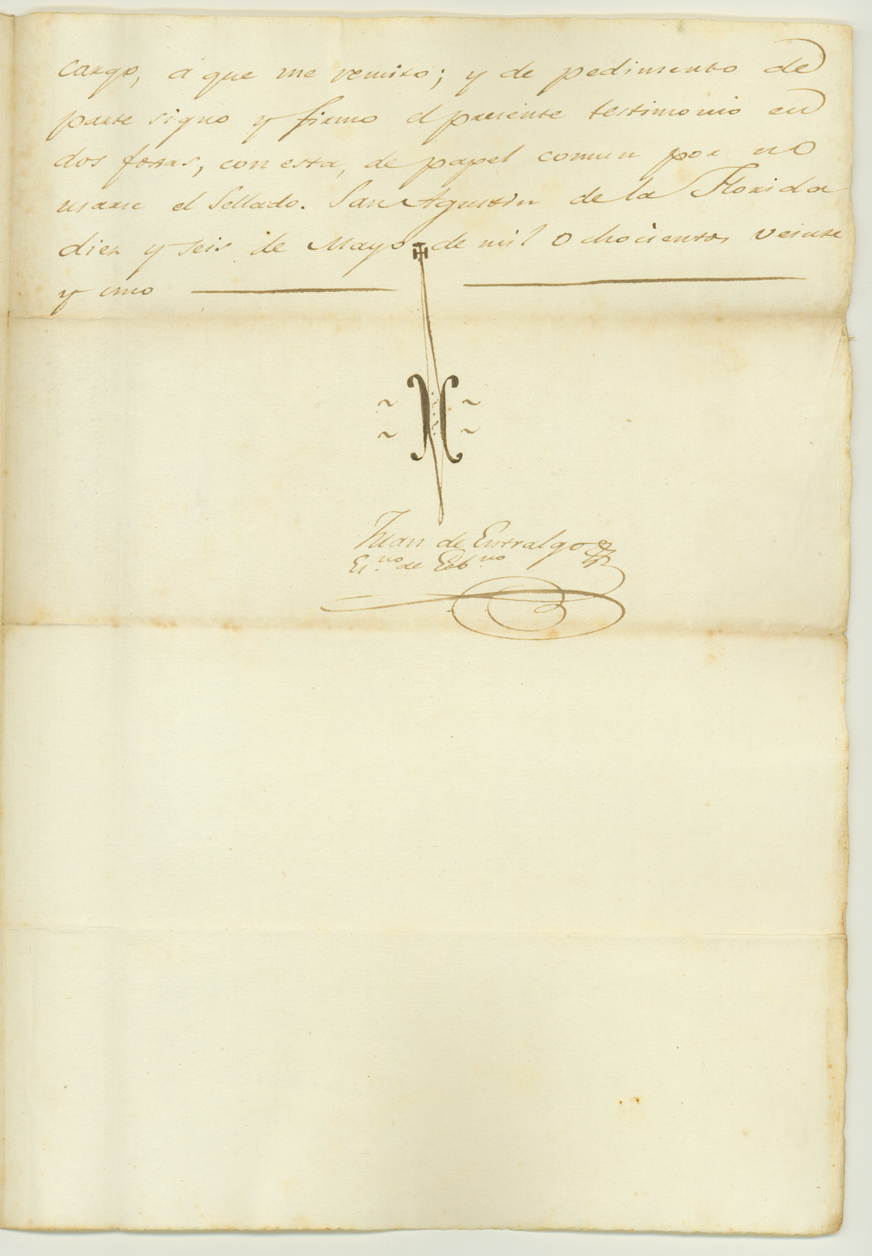 cargo, á que me remito; y de pedimento de
parte signo y firmo el presente testimonio en
dos foxas, con esta, de papel comun por no
usarse el Sellado. San Agustin de la Florida
diez y seis de Mayo de mil ochocientos veinte
y uno
Juan de Entralgo
Es.no de Gob.no